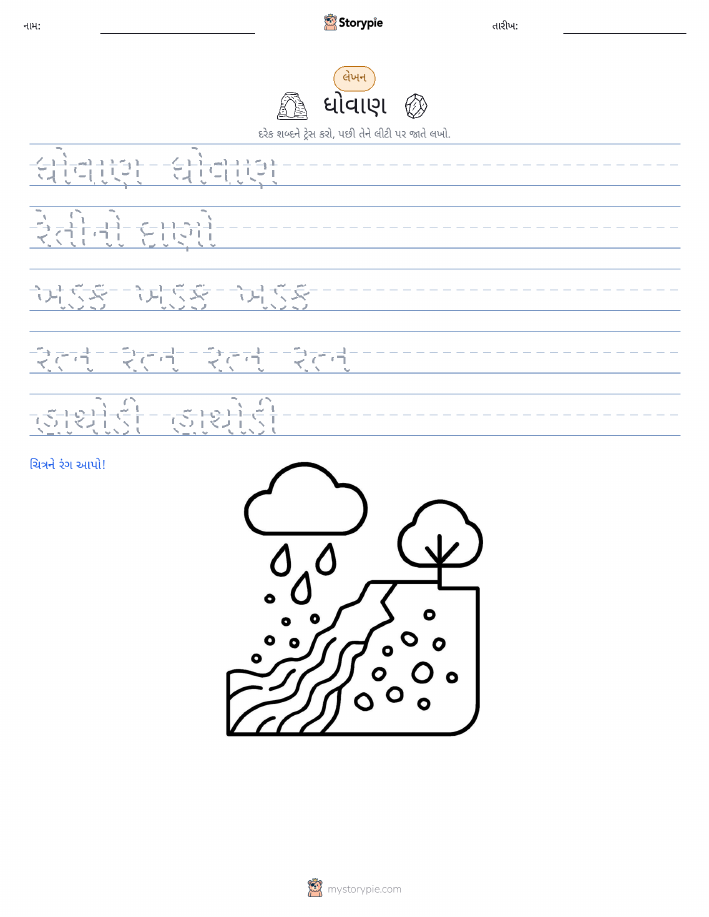 નામ:
Storypie
તારીખ:
લેખન
ધોવાણ
દરેક શબ્દને ટ્રેસ કરો, પછી તેને લીટી પર જાતે લખો.
ધોવાણ ધોવાણ
રેતીનો દાણો
ખડક ખડક ખડક
રત્ન રત્ન રત્ન રત્ન
હાથોડી હાથોડી
ચિત્રને રંગ આપો!
mystorypie.com